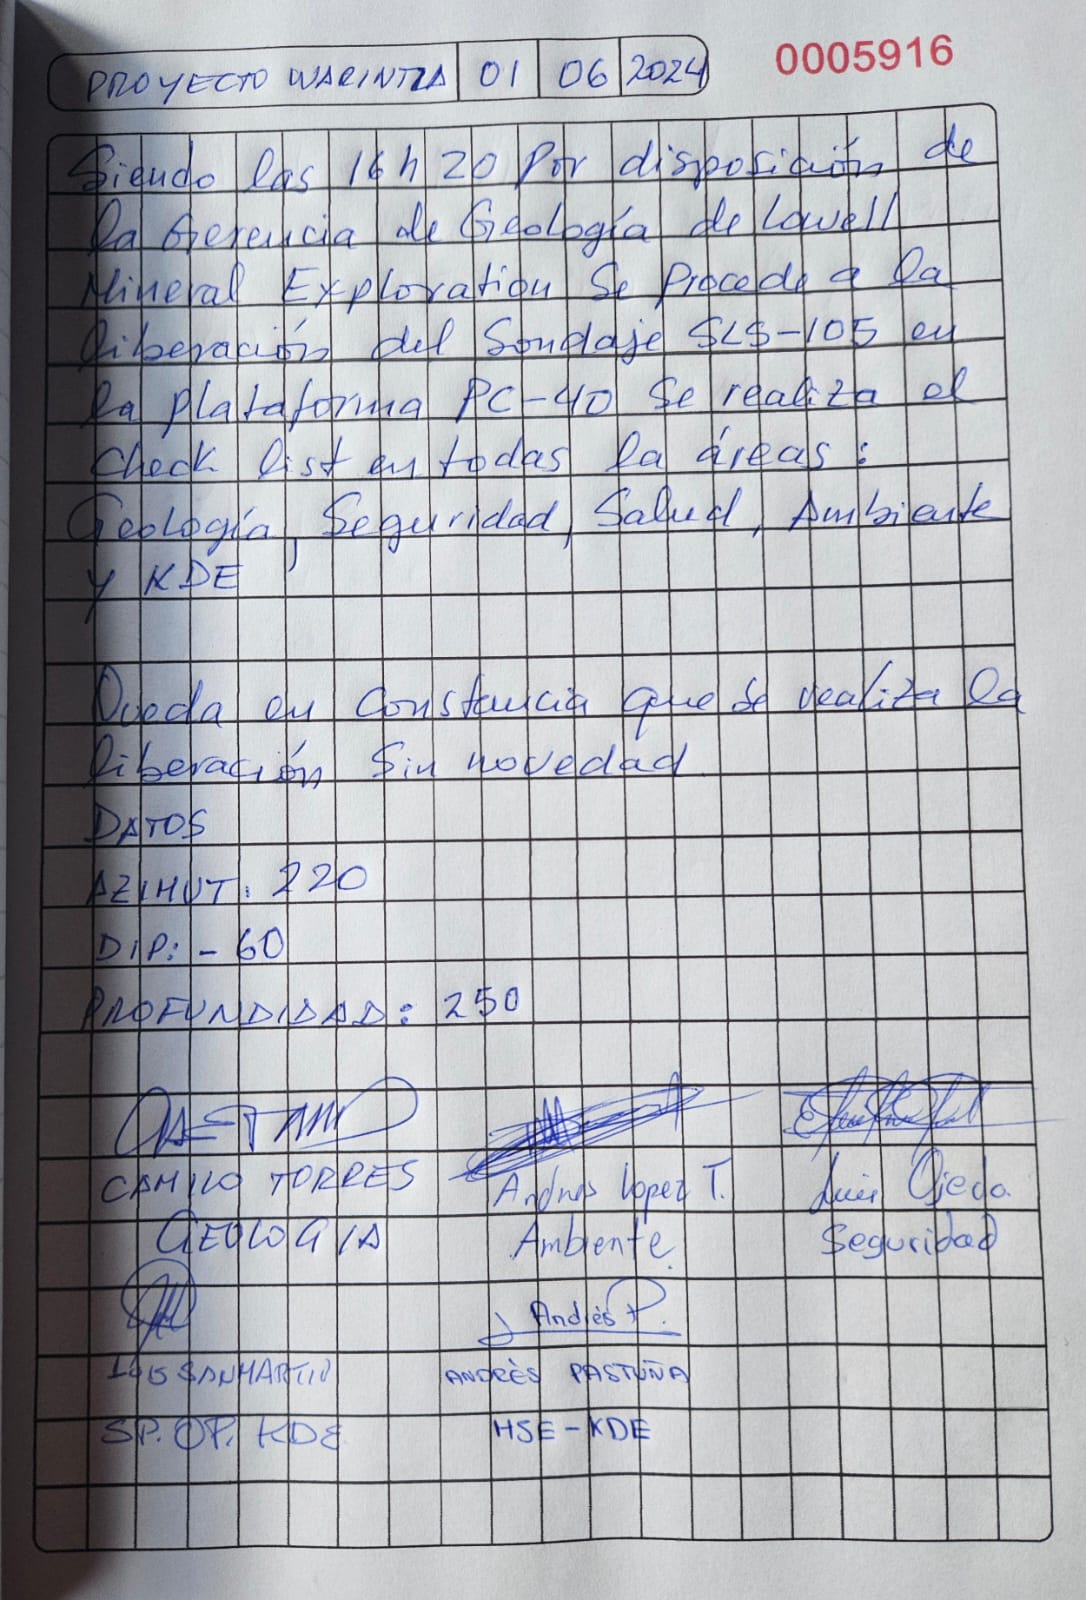 PROYECTO WARINTZA 01 06 2024 0005916
Siendo las 16h20 Por disposición de
la Gerencia de Geología de Lowell
Mineral Exploration Se Procede a la
liberación del Sondaje SLS-105 en
la plataforma PC-40 Se realiza el
Check list en todas la áreas:
Geología, Seguridad, Salud, Ambiente
y KDE
Queda en Constancia que se realiza la
liberación Sin novedad
DATOS
AZIMUT: 220
DIP: -60
PROFUNDIDAD: 250
CAMILO TORRES Andrés Lopez T. Luis Ojeda
GEOLOGIA Ambiente. Seguridad
Andrés P.
LUIS SANMARTIN ANDRÈS PASTUÑA
SP. OP. KDE HSE-KDE